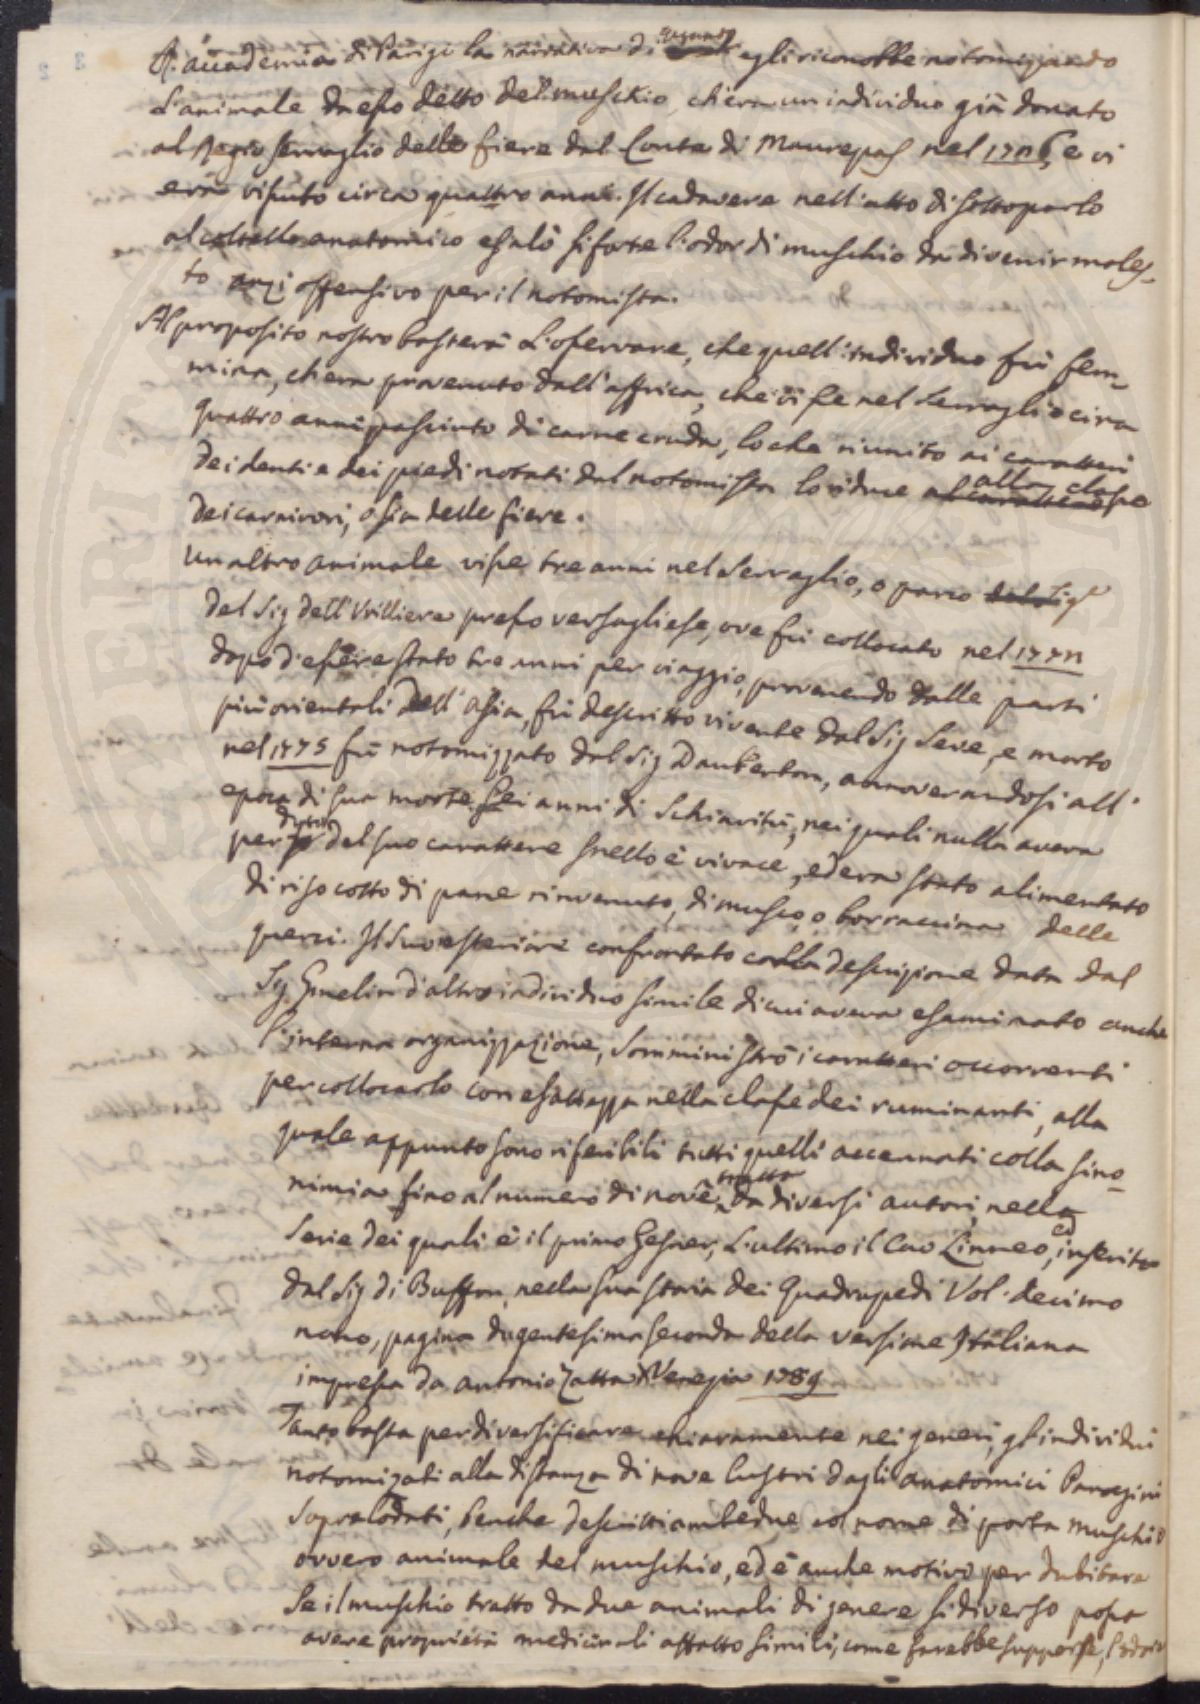 R. accademia di Parigi la narrativa di quanto egli riconobbe notomizzando
l'animale da esso detto del muschio, ch'era un individuo già donato
al Regio serraglio delle fiere dal Conte di Maurepas nel 1726, e vi
era vissuto circa quattro anni. Il cadavere nell'atto di sottoporlo
al coltello anatomico esalò sì forte l'odor di muschio da divenir moles-
to anzi offensivo per il notomista.
Al proposito nostro basterà l'osservare, che quell'individuo fù fem-
mina, ch'era provenuto dall'affrica, che visse nel serraglio circa
quattro anni pasciuto di carne cruda, loche riunito ai caratteri
dei denti e dei piedi notati dal notomista lo riduce alla classe
dei carnivori, o sia delle fiere.
Un altro animale visse tre anni nel serraglio, o parco
del Sig dell'Vrilliere presso versagliese, ove fù collocato nel 1772
dopo d'essere stato tre anni per viaggio, provenendo dalle parti
più orientali dell'Asia, fù descritto vivente dal Sig Seve, e morto
nel 1775 fù notomizzato dal Sig Daubenton, annoverandosi all'
epoca di sua morte sei anni di schiavitù, nei quali nulla aveva
perduto del suo carattere snello e vivace, ed era stato alimentato
di riso cotto di pane rinvenuto, di musco, o borraccina delle
querci. Il suo esteriore confrontato colla descrizione data dal
Sig Gmelin d'altro individuo simile di cui aveva esaminato anche
l'interna organizzazione, somministrò i caratteri occorrenti
per collocarlo con esattezza nella classe dei ruminanti, alla
quale appunto sono riferibili tutti quelli accennati colla sino-
nimia fino al numero di nove, tratta da diversi autori, nella
serie dei quali è il primo Gesner, l'ultimo il Cav Linneo, ed inserita
dal Sig di Buffon, nella sua storia dei Quadrupedi Vol. decimo
nono, pagina dugentesima seconda della versione Italiana
impressa da Antonio Zatta Venezia 1789
Tanto basta per diversificare chiaramente nei generi, gl'individui
notomizati alla distanza di nove lustri dagli anatomici Parigini
sopralodati, benche descritti ambedue col nome di porta muschio
ovvero animale del muschio, ed è anche motivo per dubitare
se il muschio tratto da due animali di genere sì diverso possa
avere proprietà medicinali affatto simili, come farebbe supporre, l'odore